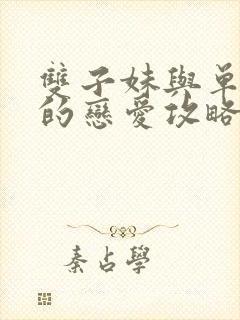 雙子妹與單
的戀愛攻略
秦占學